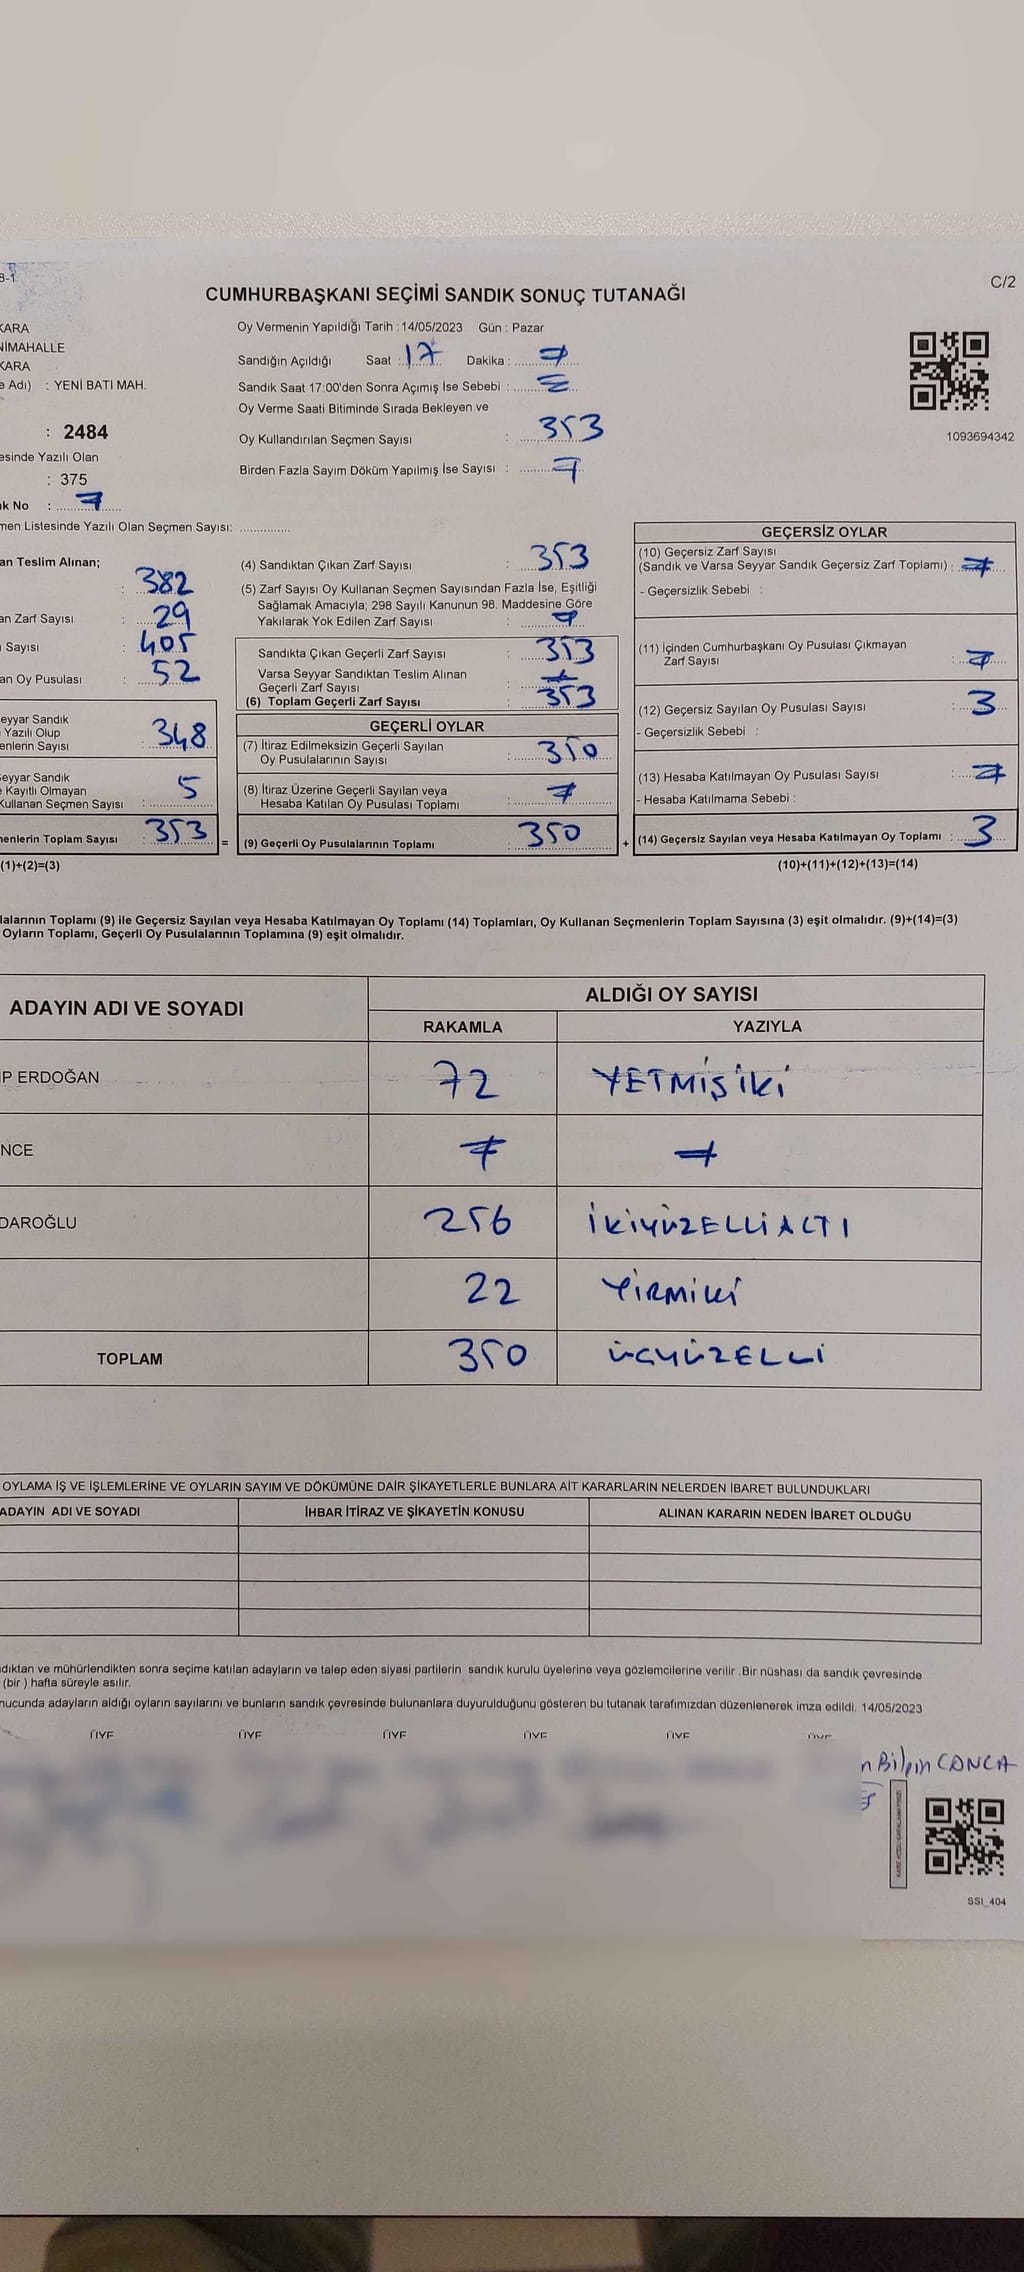 8-1
C/2
CUMHURBAŞKANI SEÇİMİ SANDIK SONUÇ TUTANAĞI
KARA
NİMAHALLE
KARA
e Adı) : YENİ BATI MAH.
: 2484
esinde Yazılı Olan
: 375
ık No :
men Listesinde Yazılı Olan Seçmen Sayısı: ..............
Oy Vermenin Yapıldığı Tarih : 14/05/2023 Gün : Pazar
Sandığın Açıldığı Saat : 17 Dakika :
Sandık Saat 17:00'den Sonra Açımış İse Sebebi :
Oy Verme Saati Bitiminde Sırada Bekleyen ve
Oy Kullandırılan Seçmen Sayısı : 353
Birden Fazla Sayım Döküm Yapılmış İse Sayısı :
1093694342
an Teslim Alınan;
: 382
an Zarf Sayısı : 29
ı Sayısı : 405
an Oy Pusulası : 52
eyyar Sandık
Yazılı Olup
enlerin Sayısı : 348
Seyyar Sandık
e Kayıtlı Olmayan
Kullanan Seçmen Sayısı : 5
menlerin Toplam Sayısı : 353 =
(1)+(2)=(3)
(4) Sandıktan Çıkan Zarf Sayısı : 353
(5) Zarf Sayısı Oy Kullanan Seçmen Sayısından Fazla İse, Eşitliği
Sağlamak Amacıyla; 298 Sayılı Kanunun 98. Maddesine Göre
Yakılarak Yok Edilen Zarf Sayısı :
Sandıkta Çıkan Geçerli Zarf Sayısı : 353
Varsa Seyyar Sandıktan Teslim Alınan
Geçerli Zarf Sayısı :
(6) Toplam Geçerli Zarf Sayısı : 353
GEÇERLİ OYLAR
(7) İtiraz Edilmeksizin Geçerli Sayılan
Oy Pusulalarının Sayısı : 350
(8) İtiraz Üzerine Geçerli Sayılan veya
Hesaba Katılan Oy Pusulası Toplamı :
(9) Geçerli Oy Pusulalarının Toplamı : 350 +
GEÇERSİZ OYLAR
(10) Geçersiz Zarf Sayısı
(Sandık ve Varsa Seyyar Sandık Geçersiz Zarf Toplamı) :
- Geçersizlik Sebebi :
(11) İçinden Cumhurbaşkanı Oy Pusulası Çıkmayan
Zarf Sayısı :
(12) Geçersiz Sayılan Oy Pusulası Sayısı : 3
- Geçersizlik Sebebi :
(13) Hesaba Katılmayan Oy Pusulası Sayısı :
- Hesaba Katılmama Sebebi :
(14) Geçersiz Sayılan veya Hesaba Katılmayan Oy Toplamı : 3
(10)+(11)+(12)+(13)=(14)
lalarının Toplamı (9) ile Geçersiz Sayılan veya Hesaba Katılmayan Oy Toplamı (14) Toplamları, Oy Kullanan Seçmenlerin Toplam Sayısına (3) eşit olmalıdır. (9)+(14)=(3)
Oyların Toplamı, Geçerli Oy Pusulalarının Toplamına (9) eşit olmalıdır.
ADAYIN ADI VE SOYADI ALDIĞI OY SAYISI
RAKAMLA YAZIYLA
İP ERDOĞAN 72 YETMİŞ İKİ
NCE
DAROĞLU 256 İKİYÜZELLİALTI
22 YİRMİİKİ
TOPLAM 350 ÜÇYÜZELLİ
OYLAMA İŞ VE İŞLEMLERİNE VE OYLARIN SAYIM VE DÖKÜMÜNE DAİR ŞİKAYETLERLE BUNLARA AİT KARARLARIN NELERDEN İBARET BULUNDUKLARI
ADAYIN ADI VE SOYADI İHBAR İTİRAZ VE ŞİKAYETİN KONUSU ALINAN KARARIN NEDEN İBARET OLDUĞU
dıktan ve mühürlendikten sonra seçime katılan adayların ve talep eden siyasi partilerin sandık kurulu üyelerine veya gözlemcilerine verilir .Bir nüshası da sandık çevresinde
(bir ) hafta süreyle asılır.
nucunda adayların aldığı oyların sayılarını ve bunların sandık çevresinde bulunanlara duyurulduğunu gösteren bu tutanak tarafımızdan düzenlenerek imza edildi. 14/05/2023
ÜYE ÜYE ÜYE ÜYE ÜYE ÜYE
SSI_404